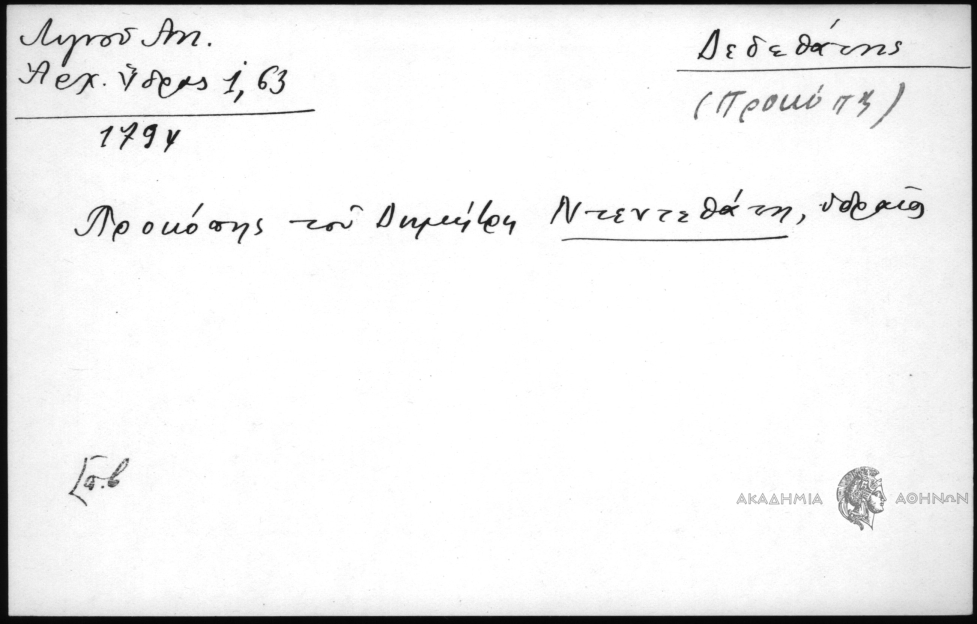 Λιγνοῦ Αντ.
Ἀρχ. Ὕδρας 1, 63
1794
Δεδεθάτης
(Προκόπης)
Προκόπης τοῦ Δημήτρη Ντεντεθάτη, ὑδραῖος
ΑΚΑΔΗΜΙΑ ΑΘΗΝΩΝ